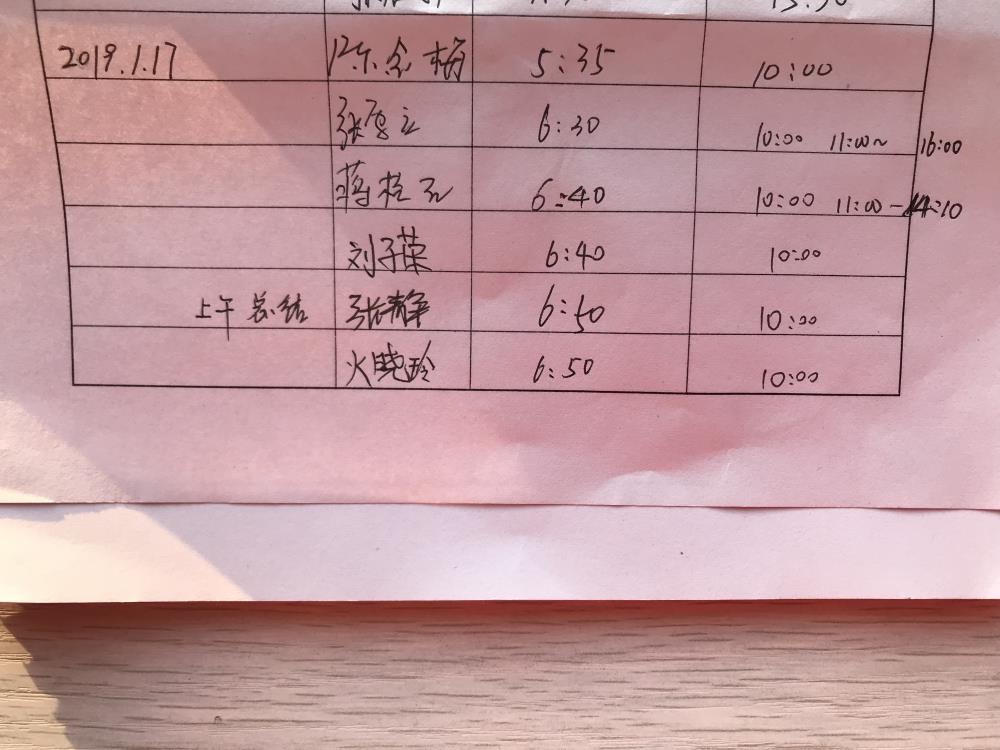 2019.1.17 陈念梅 5:35 10:00
张 立 6:30 10:00 11:00~ 16:00
蒋桂 6:40 10:00 11:00-14:10
刘子荣 6:40 10:00
上午总结 张静 6:50 10:00
火晓玲 6:50 10:00